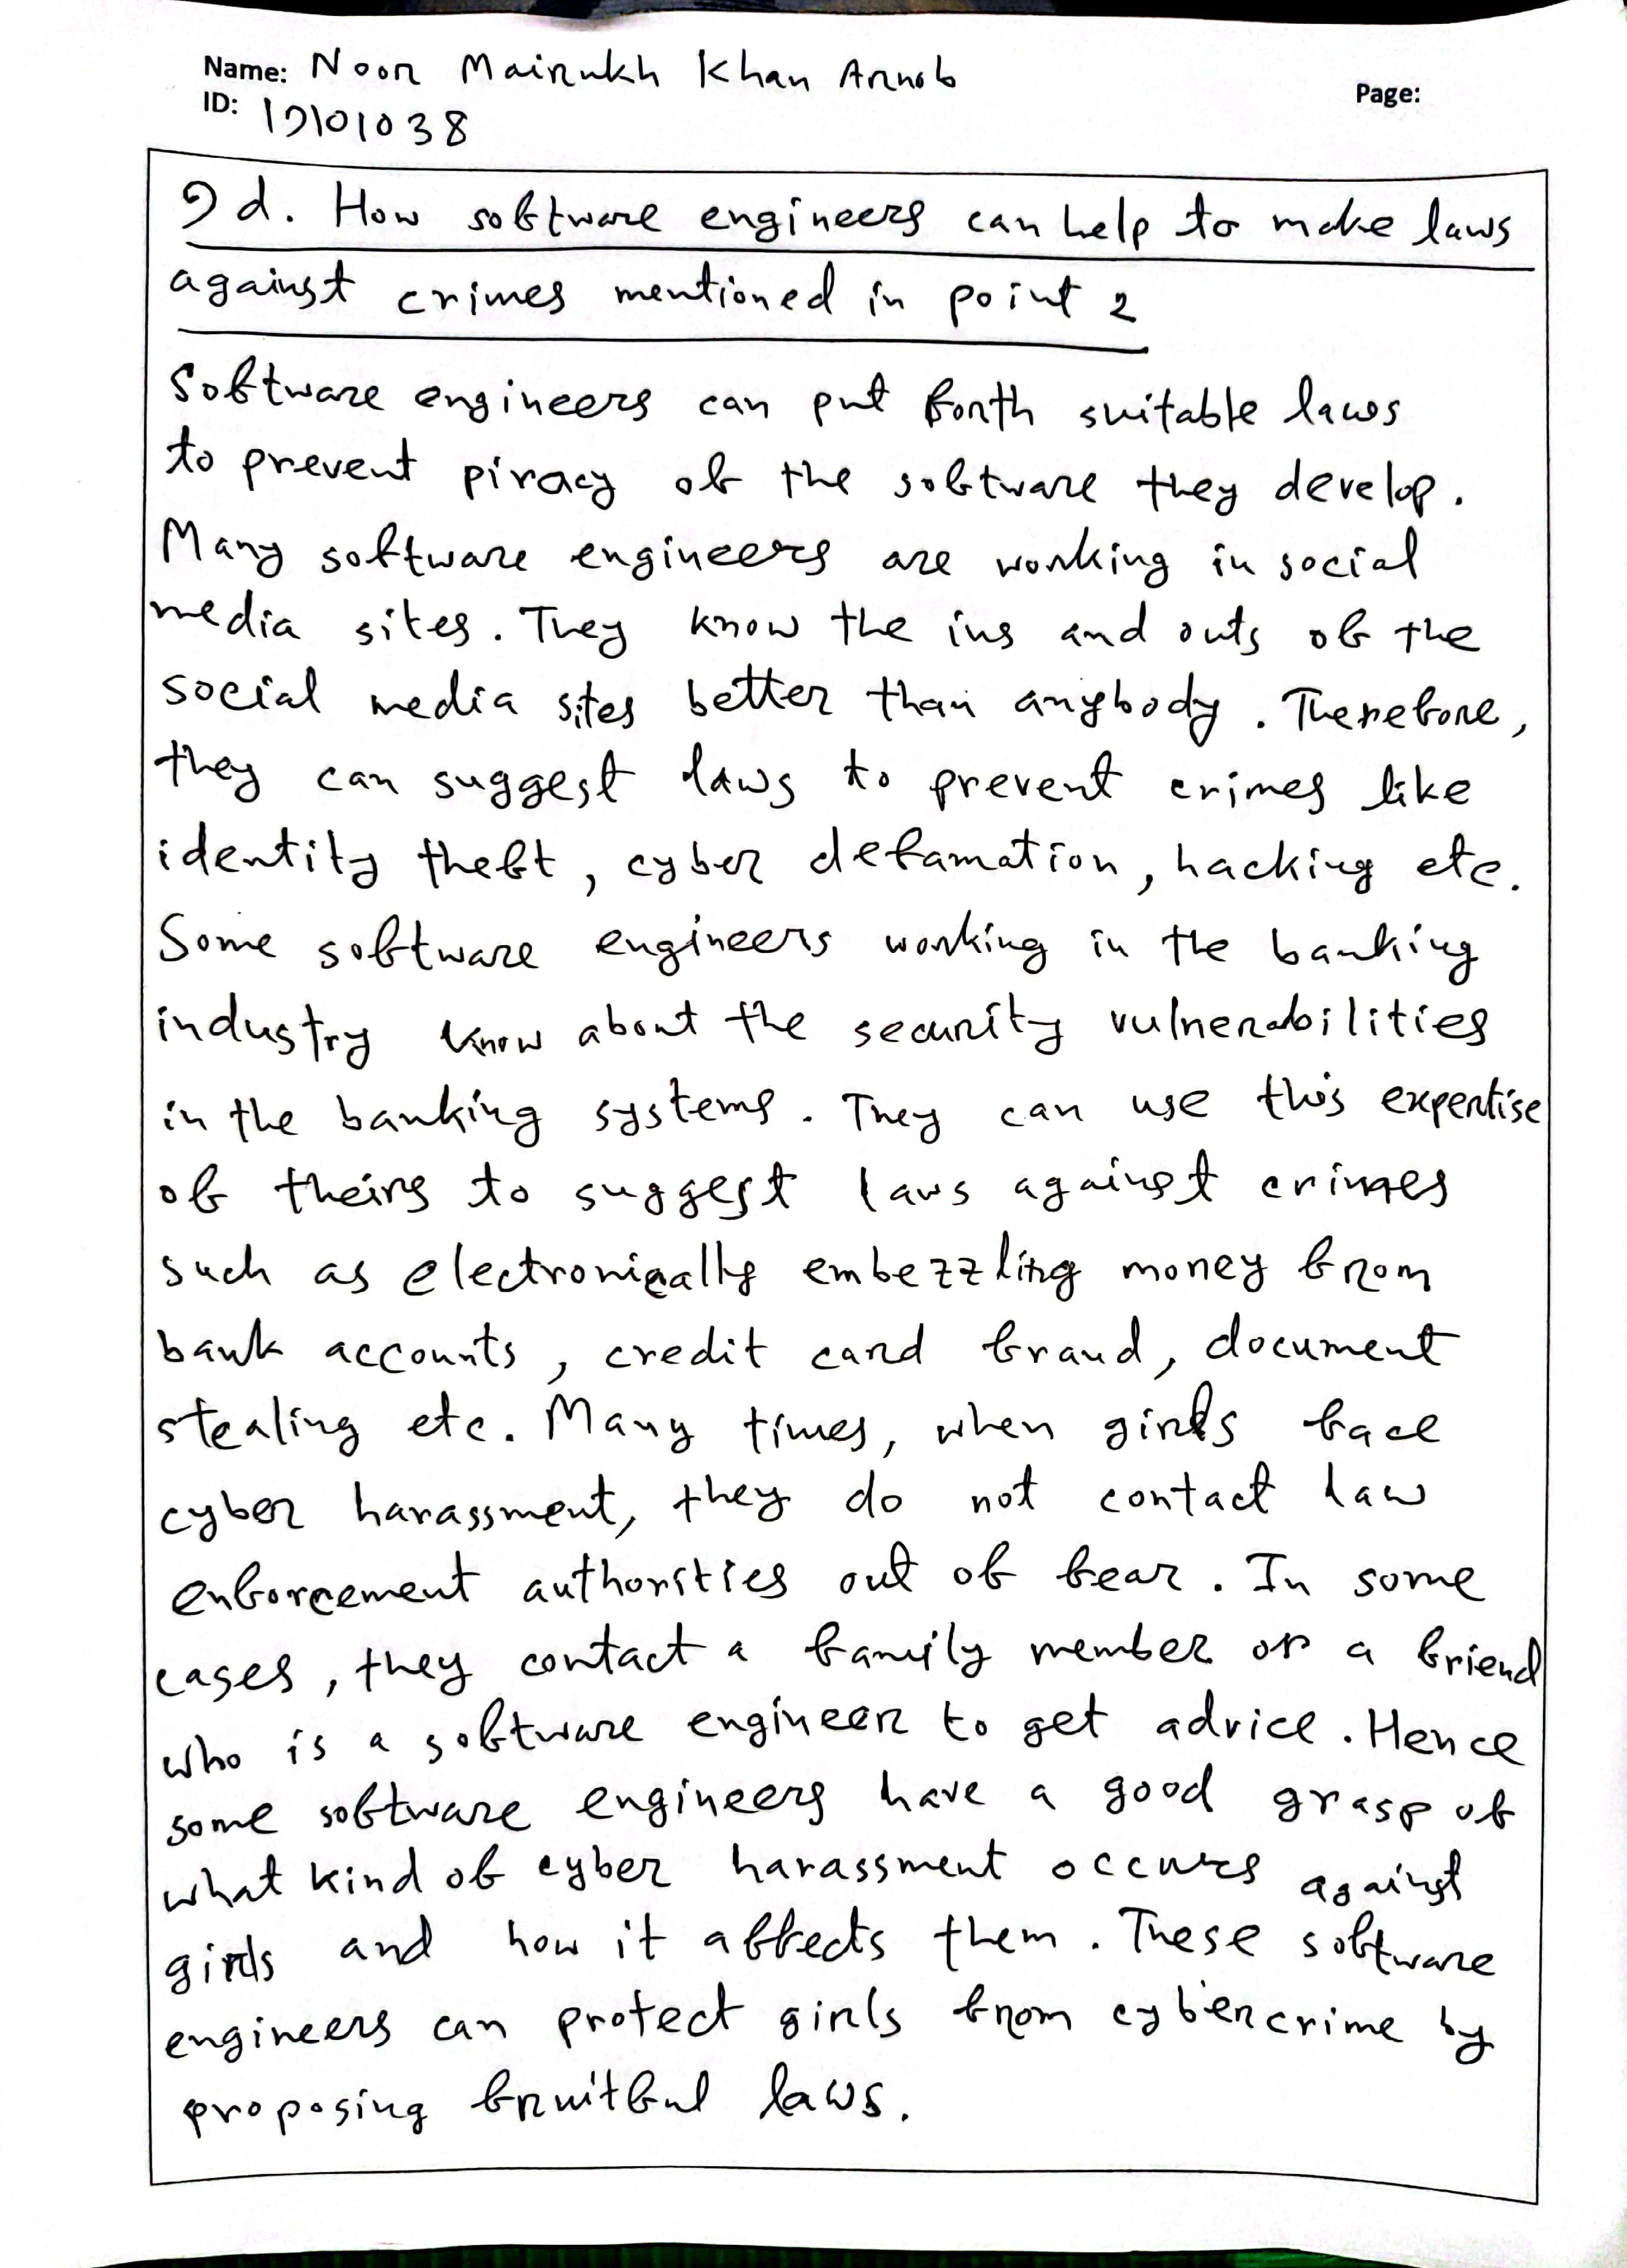 Name: Noor Mairukh Khan Arnob
Page:
ID: 19101038
9 d. How software engineers can help to make laws
against crimes mentioned in point 2
Software engineers can put forth suitable laws
to prevent piracy of the software they develop.
Many software engineers are working in social
media sites. They know the ins and outs of the
social media sites better than anybody. Therefore,
they can suggest laws to prevent crimes like
identity theft, cyber defamation, hacking etc.
Some software engineers working in the banking
industry know about the security vulnerabilities
in the banking systems. They can use this expertise
of theirs to suggest laws against crimes
such as electronically embezzling money from
bank accounts, credit card fraud, document
stealing etc. Many times, when girls face
cyber harassment, they do not contact law
enforcement authorities out of fear. In some
cases, they contact a family member or a friend
who is a software engineer to get advice. Hence
some software engineers have a good grasp of
what kind of cyber harassment occurs against
girls and how it affects them. These software
engineers can protect girls from cyber crime by
proposing fruitful laws.